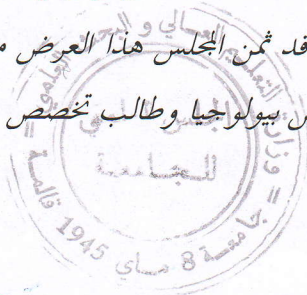 قد ثمن المجلس هذا العرض
بيولوجيا وطالب تخصص
وزارة التعليم العالي و البحث العلمي
المجلس العلمي
للجامعة
جامعة 8 ماي 1945 قالمة